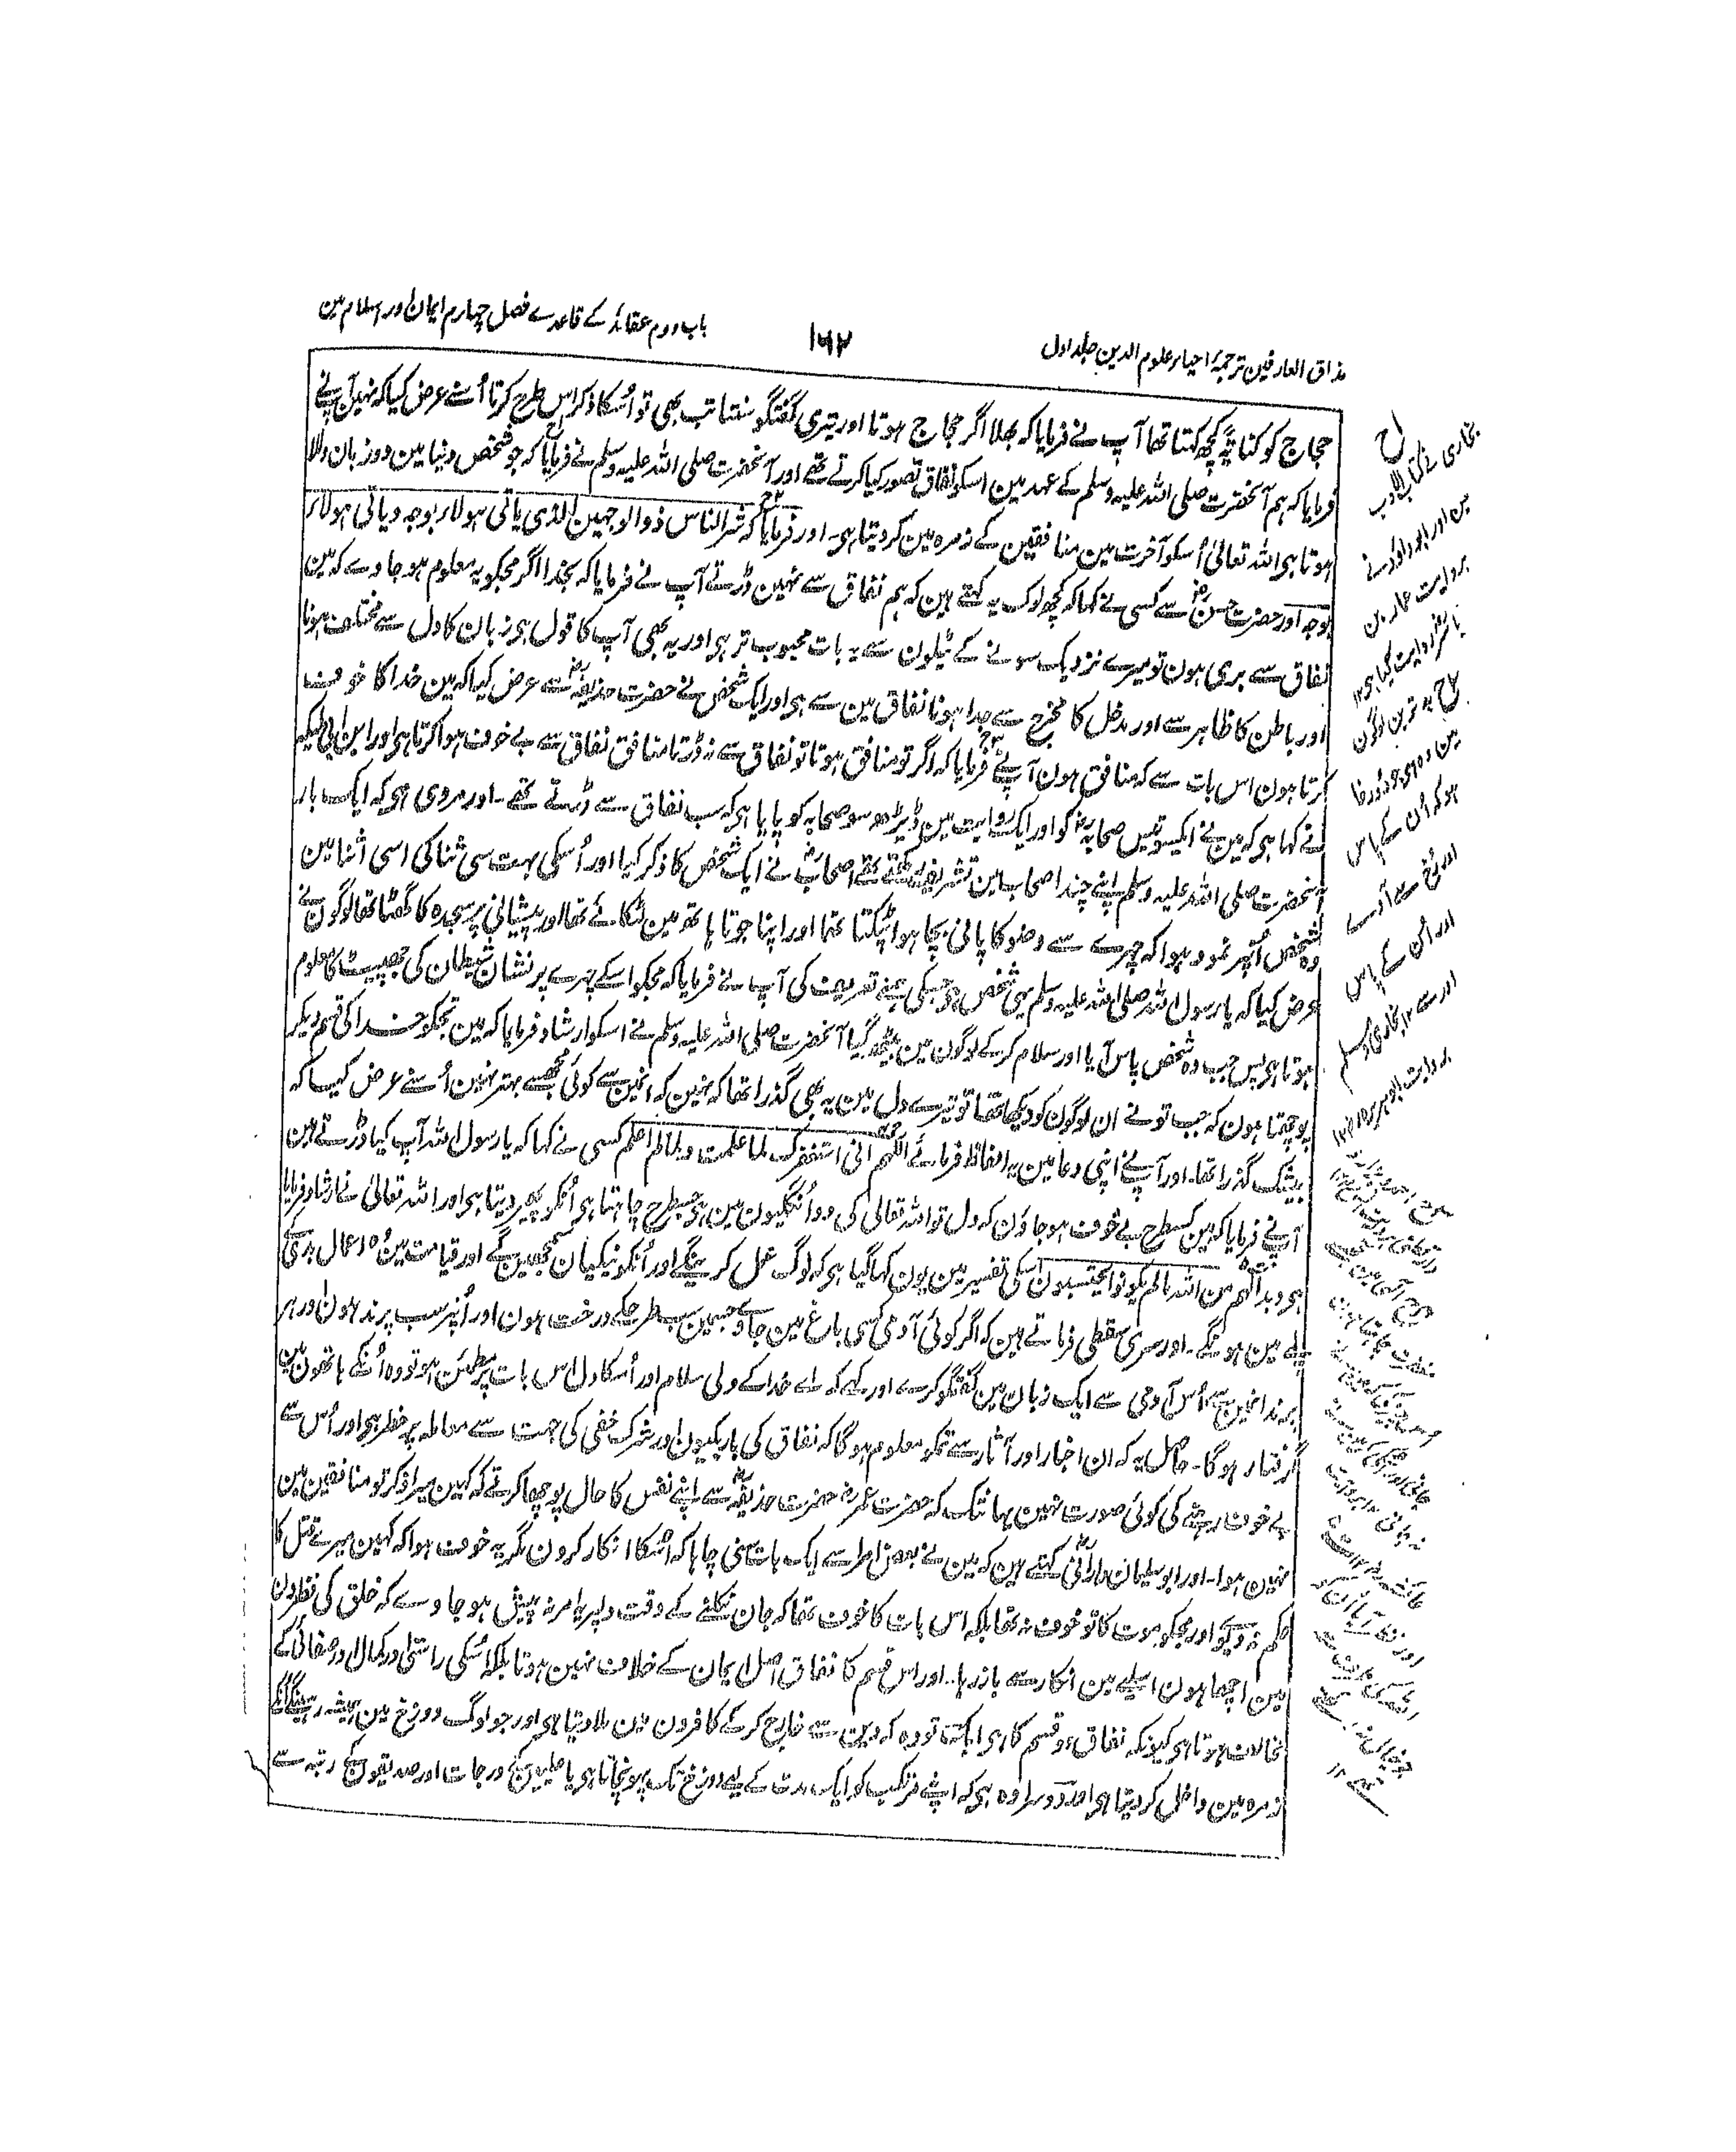 مذاق العارفین ترجمۂ احیاء علوم الدین جلد اول
۱۶۲
باب دوم عقائد کے قاعدے فصل چہارم ایمان اور اسلام مین
حجاج کو کنایۃً کچھ کہتا تھا آپ نے فرمایا کہ بھلا اگر حجاج ہوتا اور تیری گفتگو سنتا تب بھی تو اُسکا ذکر اس طرح کرتا اُسنے عرض کیا کہ نہین آپنے
فرمایا کہ ہم آنحضرت صلی اللہ علیہ وسلم کے عہد مین اسکو نفاق تصور کیا کرتے تھے اور آنحضرت صلی اللہ علیہ وسلم نے فرمایا کہ جو شخص دنیا مین دو زبان والا
ہوتا ہی اللہ تعالیٰ اُسکو آخرت مین منافقین کے زمرہ مین کردیتا ہی۔ اور فرمایا کہ شر الناس ذوالوجہین الذی یاتی ہولاء بوجہ ویاتی ہولاء
بوجہ اور حضرت حسن رضؓ سے کسی نے کہا کہ کچھ لوگ یہ کہتے ہین کہ ہم نفاق سے نہین ڈرتے آپ نے فرمایا کہ بخدا اگر مجکو یہ معلوم ہو جاوے کہ مین
نفاق سے بری ہون تو میرے نزدیک سونے کے ٹیلون سے یہ بات محبوب تر ہی اور یہ بھی آپ کا قول ہی زبان کا دل سے مختلف ہونا
اور باطن کا ظاہر سے اور مدخل کا مخرج سے جدا ہونا نفاق مین سے ہی اور ایک شخص نے حضرت حذیفہؓ سے عرض کیا کہ مین خدا کا خوف
کرتا ہون اس بات سے کہ منافق ہون آپنے فرمایا کہ اگر تو منافق ہوتا تو نفاق سے نہ ڈرتا منافق نفاق سے بے خوف ہوا کرتا ہی اور ابن ابی ملیکہ
نے کہا ہی کہ مین نے ایکسو تیس صحابہؓ کو اور ایک روایت مین ڈیڑھ سو صحابہ کو پایا ہی کہ سب نفاق سے ڈرتے تھے۔ اور مروی ہی کہ ایک بار
آنحضرت صلی اللہ علیہ وسلم اپنے چند اصحاب مین تشریف رکھتے تھے اصحابؓ نے ایک شخص کا ذکر کیا اور اُسکی بہت سی ثنا کی اسی اثنا مین
وہ شخص اُنپر نمود ہوا کہ چہرے سے وضو کا پانی بچا ہوا ٹپکتا تھا اور اپنا جوتا ہاتھ مین لٹکائے تھا اور پیشانی پر سجدہ کا گھٹا تھا لوگون نے
عرض کیا کہ یا رسول اللہ صلی اللہ علیہ وسلم یہی شخص ہی جسکی ہمنے تعریف کی آپ نے فرمایا کہ مجکو اسکے چہرے پر نشان شیطان کی جھپیٹ کا معلوم
ہوتا ہی پس جب وہ شخص پاس آیا اور سلام کر کے لوگون مین بیٹھ گیا آنحضرت صلی اللہ علیہ وسلم نے اسکو ارشاد فرمایا کہ مین تجکو خدا کی قسم دیکر
پوچھتا ہون کہ جب تو نے ان لوگون کو دیکھا تھا تو تیرے دل مین یہ بھی گذرا تھا کہ نہین کہ انمین سے کوئی مجھسے بہتر نہین اُسنے عرض کیا کہ
بیشک گذرا تھا۔ اور آپنے اپنی دعا مین یہ الفاظ فرمائے اللہم انی استغفرک لما علمت ولما لم اعلم کسی نے کہا کہ یا رسول اللہ آپ کیا ڈرتے ہین
آپنے فرمایا کہ مین کسطرح بے خوف ہو جاؤن کہ دل تو اللہ تعالیٰ کی دو اُنگلیون مین ہی جسطرح چاہتا ہی اُنکو پھیر دیتا ہی اور اللہ تعالیٰ نے ارشاد فرمایا
ہی وبدا لہم من اللہ ما لم یکونوا یحتسبون اسکی تفسیر مین یون کہا گیا ہی کہ لوگ عمل کرینگے اور اُنکو نیکیان سمجھین گے اور قیامت مین وہ اعمال بدی کے
پلے مین ہونگے۔ اور سری سقطی فرماتے ہین کہ اگر کوئی آدمی کسی باغ مین جاوے جسمین سب طرحکے درخت ہون اور اُنپر سب پرند ہون اور ہر
پرند انمین سے اُس آدمی سے ایک زبان مین گفتگو کرے اور کہے کہ اے خدا کے ولی سلام اور اُسکا دل اس بات پر مطمئن ہو تو وہ اُنکے ہاتھون مین
گرفتار ہوگا۔ حاصل یہ کہ ان اخبار اور آثار سے تمکو معلوم ہوگا کہ نفاق کی باریکیون اور شرک خفی کی جہت سے معاملہ پر خطر ہی اور اُس سے
بے خوف رہنے کی کوئی صورت نہین یہانتک کہ حضرت عمرؓ حضرت حذیفہؓ سے اپنے نفس کا حال پوچھا کرتے کہ کہین میرا ذکر تو منافقین مین
نہین ہوا۔ اور ابو سلیمان دارانی کہتے ہین کہ مین نے بعض امرا سے ایک بات سنی چاہا کہ اُسکا انکار کرون مگر یہ خوف ہوا کہ کہین میرے قتل کا
حکم نہ دیدے اور مجکو موت کا تو خوف نہ تھا بلکہ اس بات کا خوف تھا کہ جان نکلنے کے وقت دلپر یہ امر نہ پیش ہو جاوے کہ خلق کی نظرون
مین اچھا ہون اسلیے مین انکار سے باز رہا۔ اور اس قسم کا نفاق اصل ایمان کے خلاف نہین ہوتا بلکہ اُسکی راستی اور کمال اور صفائی کے
مخالف ہوتا ہی کیونکہ نفاق دو قسم کا ہی ایک تو وہ کہ دین سے خارج کر کے کافرون مین ملا دیتا ہی اور جو لوگ دوزخ مین ہمیشہ رہینگے اُنکے
زمرہ مین داخل کر دیتا ہی اور دوسرا وہ ہی کہ اپنے مرتکب کو ایک مدت کے لیے دوزخ تک پہونچاتا ہی یا علیین کے درجات اور صدیقون کے رتبہ سے
بخاری نے کتاب الادب
مین اور ابو داؤد نے
بروایت عمار بن
یاسرؓ روایت کیا ہی ۱۲
بدترین لوگون
مین وہ ہی جو دو رخا
ہو کہ اُن کے پاس
اور رُخ سے آوے
اور اُن کے پاس
اور سے ۱۲ بخاری و مسلم
بروایت ابو ہریرہ ۱۲